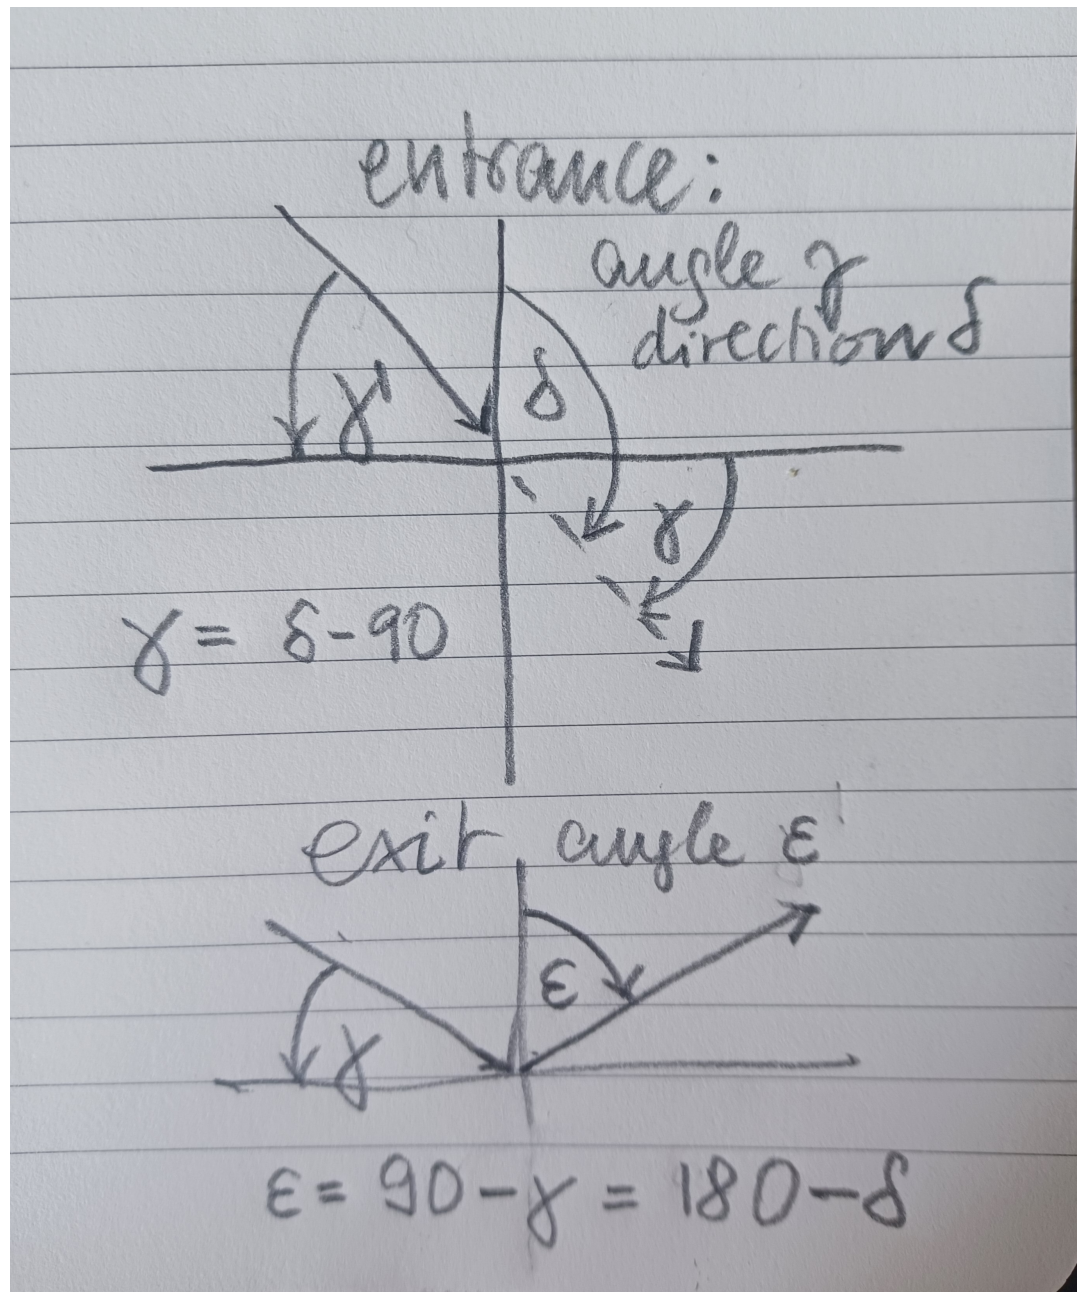 entrance:
angle γ
direction δ
γ' δ
γ
γ = δ-90
exit angle ε
ε
γ
ε = 90-γ = 180-δ